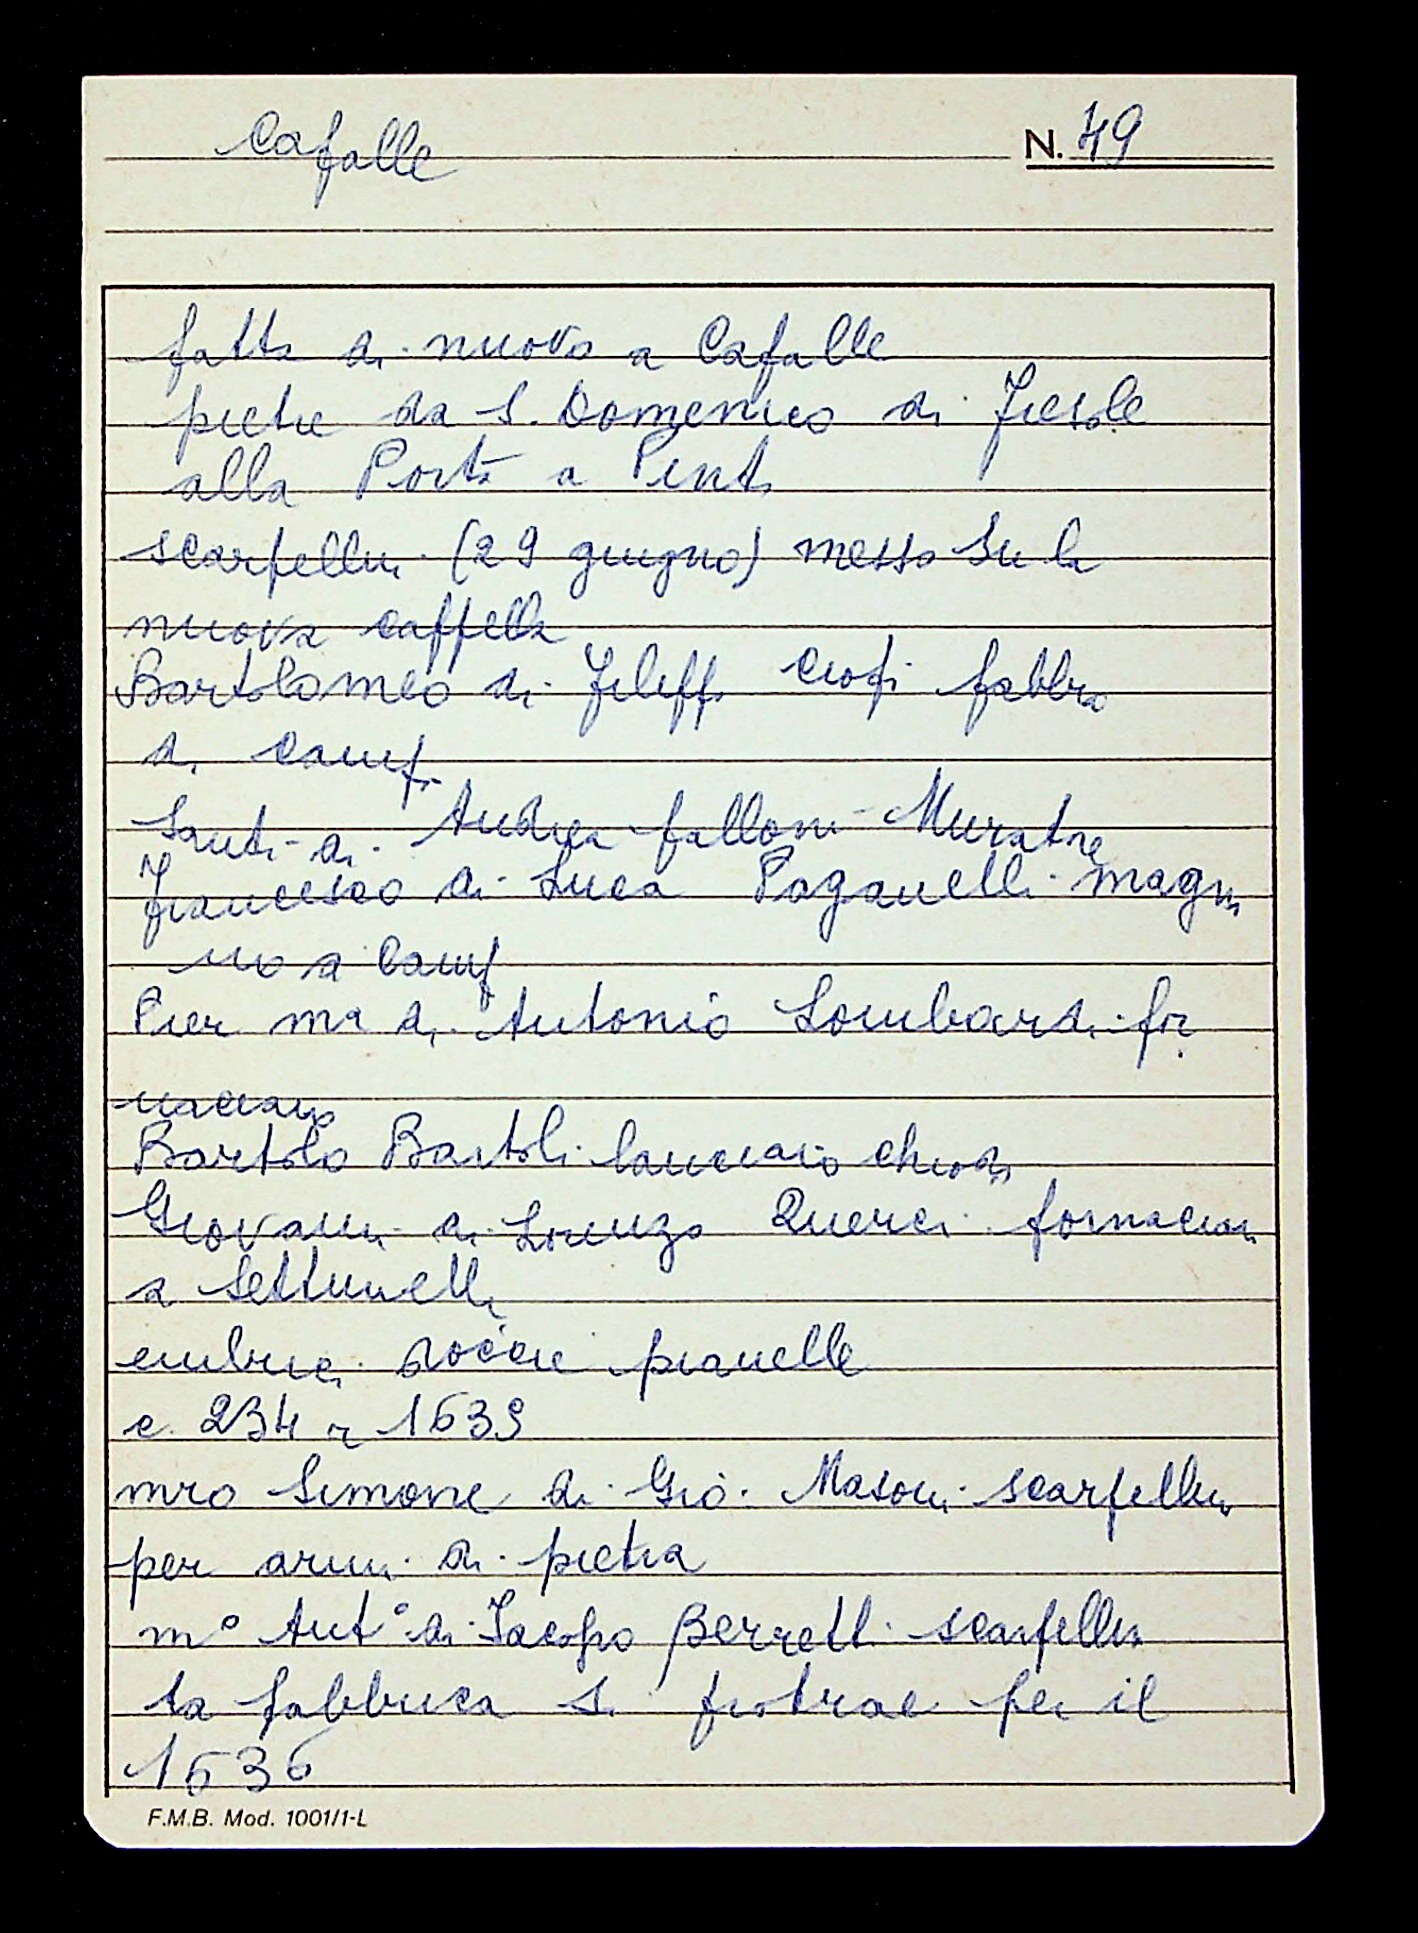 Cafalle
N. 49
fatta di nuovo a Cafalle
pietre da S. Domenico di Fiesole
alla Porta a Pinti
scarpellini (29 giugno) messo su la
nuova cappella
Bartolomeo di Filippo Ciofi fabbro
di Campi
Santi di Andrea falloni Muratore
Francesco di Luca Paganelli magni
no a Campi
Pier ma di Antonio Lombardi for
naciaio
Bartolo Bartoli lanciaio chiodi
Giovanni di Lorenzo Querci fornaciaio
a Settimello
embrici docce pianelle
c. 234 r 1639
mro Simone di Gio. Masoni scarpellino
per armi di pietra
m° Ant° di Jacopo Berretti scarpellino
la fabbrica si protrae per il
1636
F.M.B. Mod. 1001/1-L